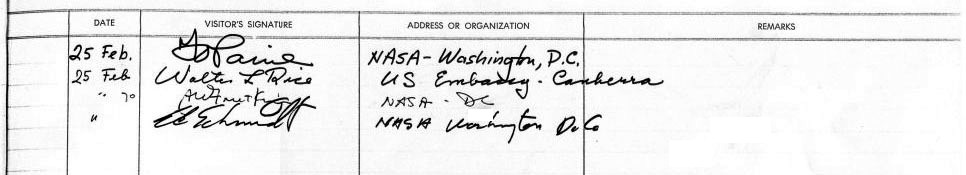 DATE VISITOR'S SIGNATURE ADDRESS OR ORGANIZATION REMARKS
25 Feb. TO Paine NASA - Washington, D.C.
25 Feb Walter L Rice US Embassy - Canberra
" 70 NASA - DC
" NASA Washington D.C.